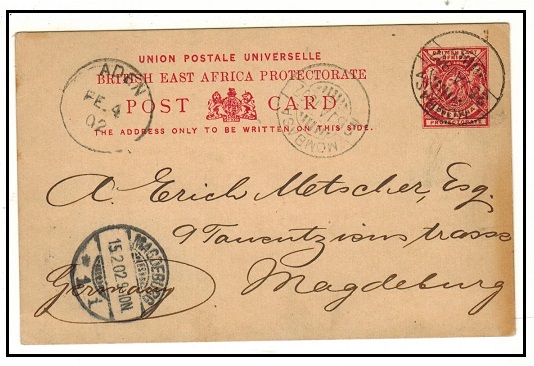 UNION POSTALE UNIVERSELLE
BRITISH EAST AFRICA PROTECTORATE
POST CARD
THE ADDRESS ONLY TO BE WRITTEN ON THIS SIDE.
BRITISH EAST
AFRICA
PROTECTORATE
ADEN
FE. 4
02
MOMBASA
A. Erich Metscher, Esq.
9 Tauentzienstrasse
Magdeburg
Germany
MAGDEBURG
15.2.02